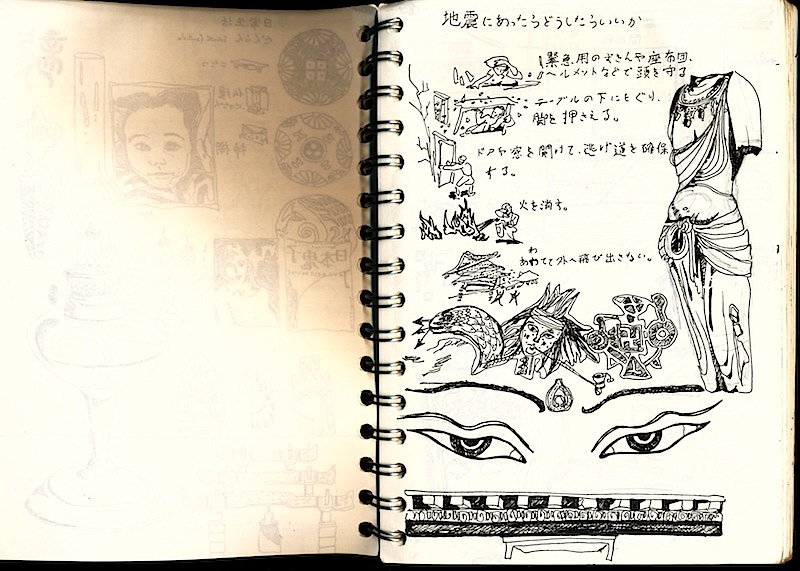 地震にあったらどうしたらいいか
緊急用のずきんや座布団、
ヘルメットなどで頭を守る
テーブルの下にもぐり、
脚を押さえる。
ドアや窓を開けて、逃げ道を確保
する。
火を消す。
わ
あわてて外へ飛び出さない。
日常生活
仏壇
神棚
日本忍了